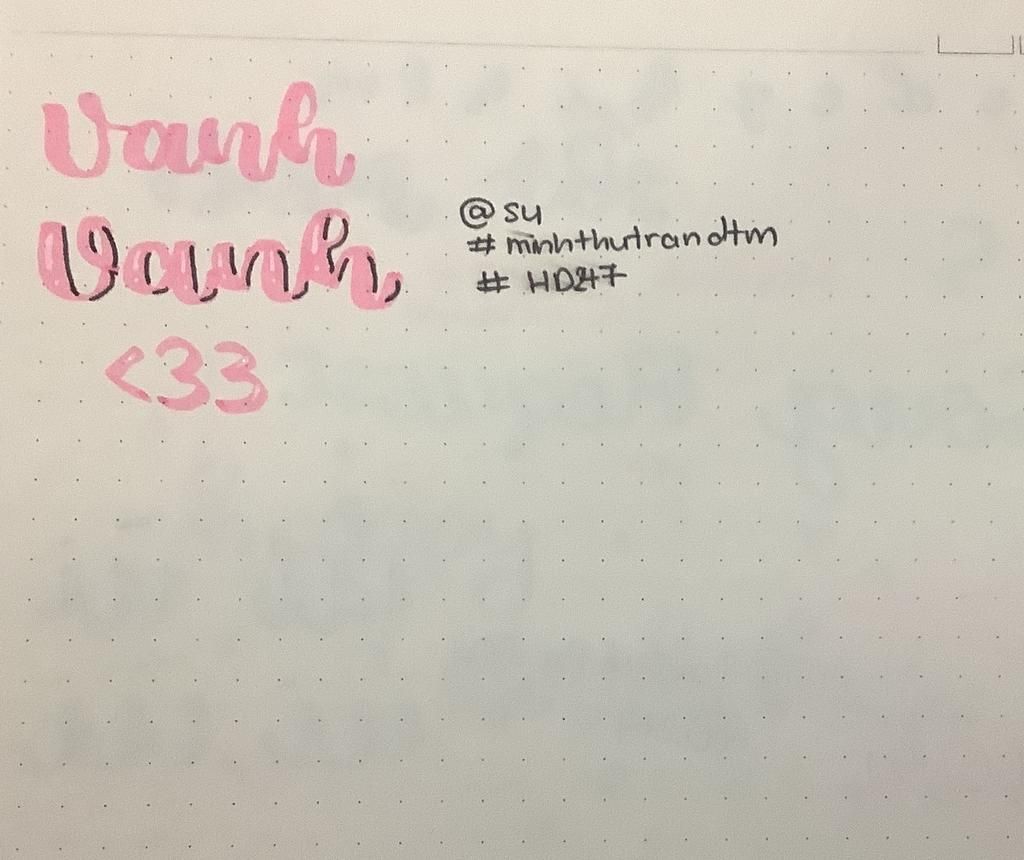 Vanh
Vanh
@ su
# minhthutrandtm
# HD247
<33